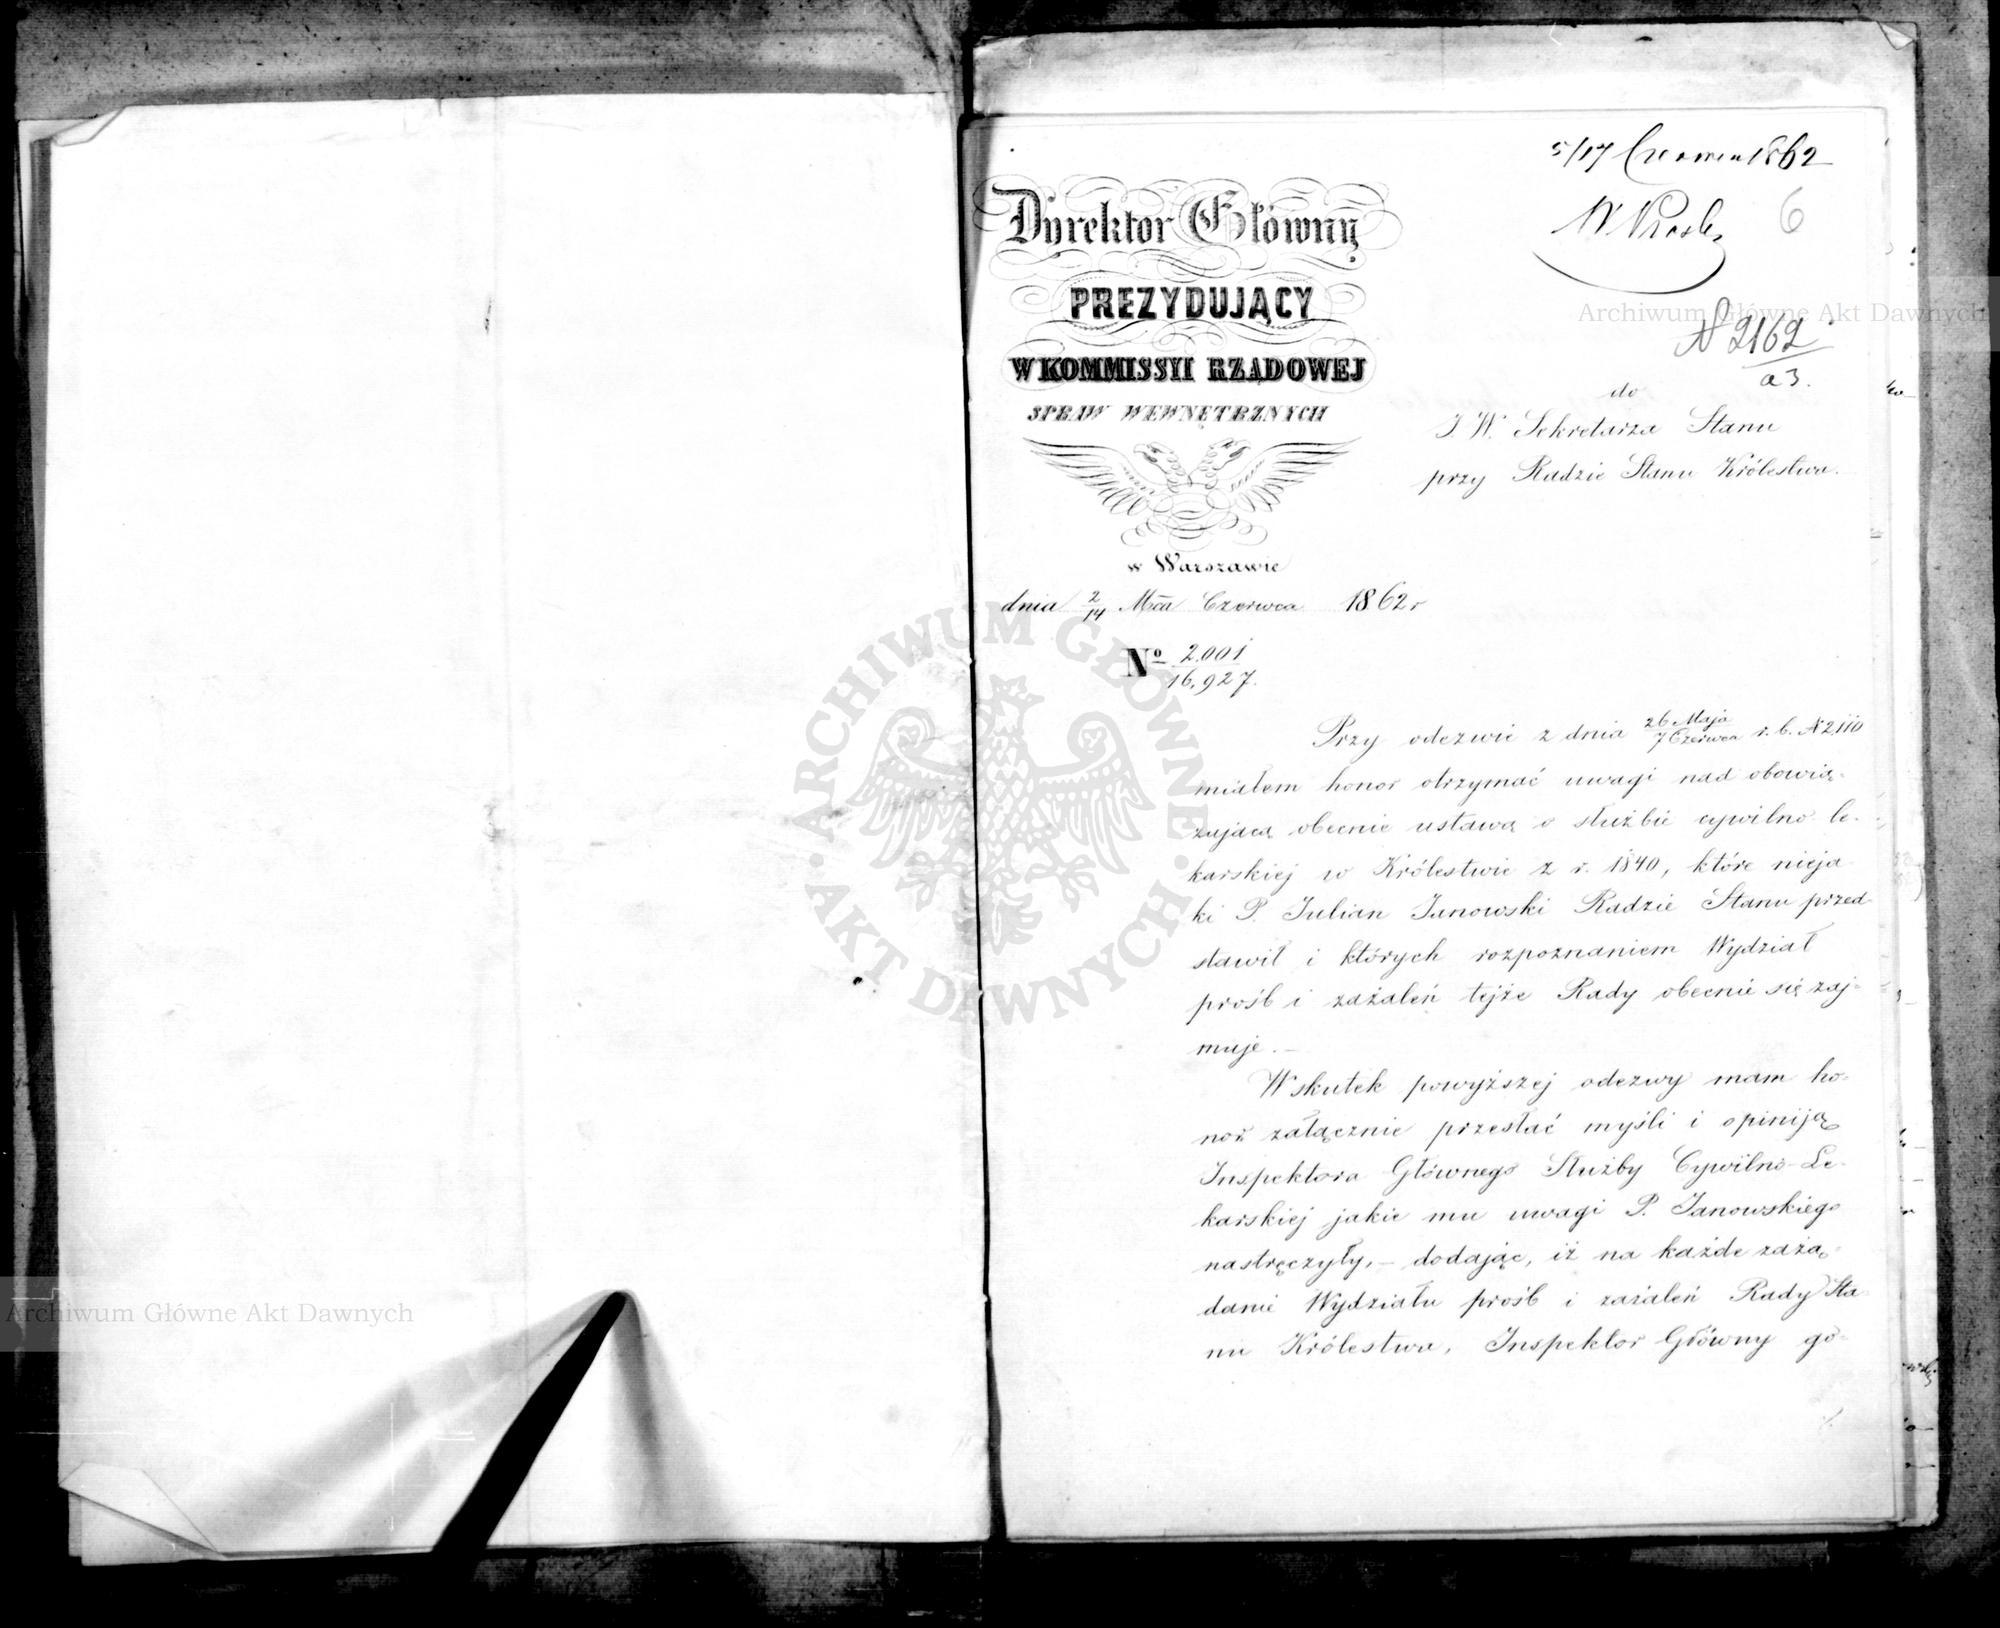 5/17 Czerwca 1862
6
N 2162
a3.
Dyrektor Główny
PREZYDUJĄCY
W KOMMISSYI RZADOWEJ
SPRAW WEWNĘTRZNYCH
w Warszawie
dnia 2/14 Mca Czerwca 1862 r
No 2.001
16,927.
do
J. W. Sekretarza Stanu
przy Radzie Stanu Królestwa.
Przy odezwie z dnia 26 Maja / 7 Czerwca r. b. N 2110
miałem honor otrzymać uwagi nad obowią-
zującą obecnie ustawą o służbie cywilno le-
karskiej w Królestwie z r. 1840, które nieja-
ki P. Julian Janowski Radzie Stanu przed-
stawił i których rozpoznaniem Wydział
próśb i zażaleń tejże Rady obecnie się zaj-
muje.—
Wskutek powyższej odezwy mam ho-
nor załącznie przesłać myśli i opiniją
Inspektora Głównego Służby Cywilno-Le-
karskiej jakie mu uwagi P. Janowskiego
nastręczyły, — dodając, iż na każde zażą-
danie Wydziału próśb i zażaleń Rady Sta-
nu Królestwa, Inspektor Główny go-
Archiwum Główne Akt Dawnych
Archiwum Główne Akt Dawnych
ARCHIWUM GŁÓWNE · AKT DAWNYCH ·